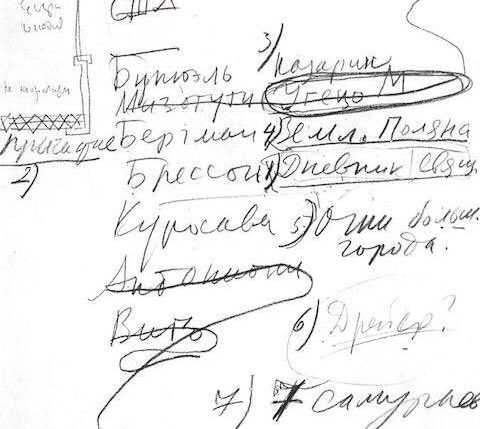 США
3) Назарин
Бунюэль
Мизогути Угецо М
Бергман 4) Земл. Поляна
Причастие
2)
Брессон 1) Дневник свящ.
Куросава 5) Огни больш.
города.
Антониони
Виго
6) Дрейер?
7) 7 самураев